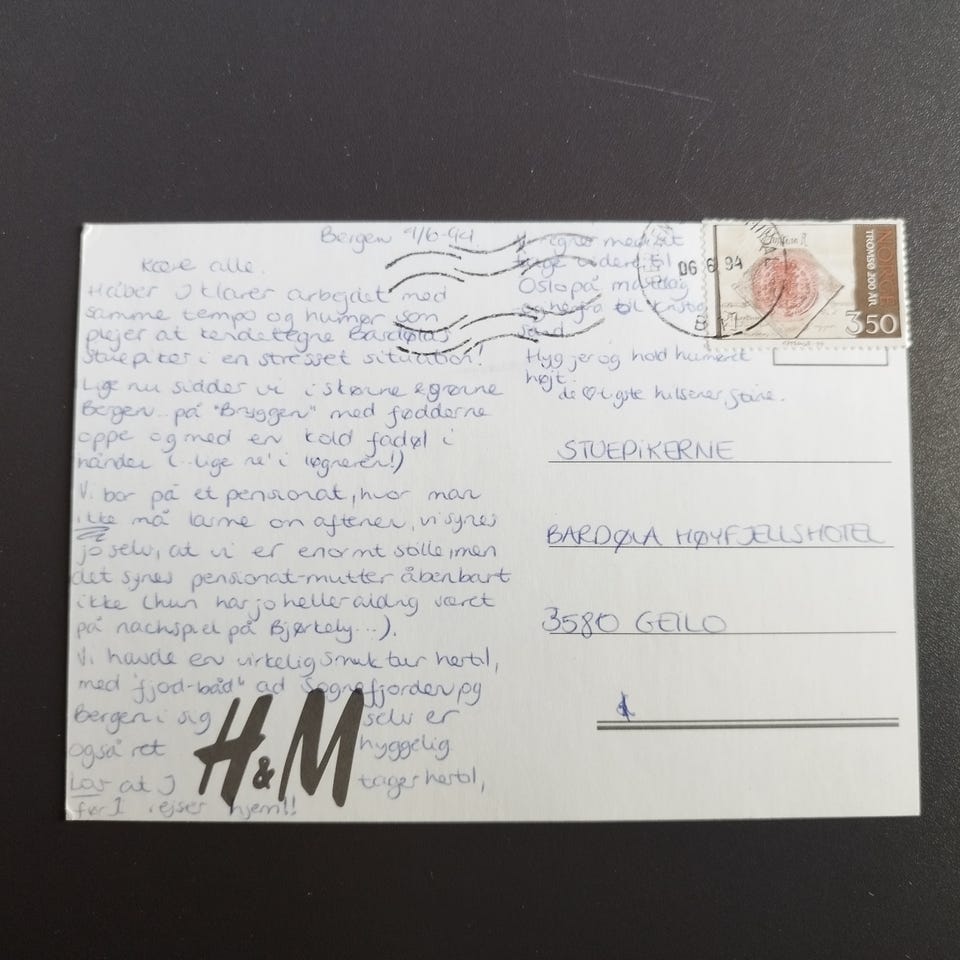 Bergen 9/6-94
Kære alle.
Håber I klarer arbejdet med
samme tempo og humør som
plejer at kendetegne Bardølas
stuepiker i en stresset situation!
Lige nu sidder vi i skønne & grønne
Bergen på "Bryggen" med fødderne
oppe og med en kold fadøl i
hånden (..lige re' i løgneren!)
Vi bor på et pensionat, hvor man
ikke må larme om aftenen, vi synes
jo selv, at vi er enormt stille, men
det synes pensionat-mutter åbenbart
ikke (hun har jo heller aldrig været
på nachspiel på Bjørkely...).
Vi havde en virkelig smuk tur hertil,
med "fjord-båd" ad Sognefjorden og
Bergen i sig selv er
også ret hyggelig
Lov at I tager hertil,
før I rejser hjem!!
H&M
regner med at
tage videre til
Oslo på mandag
og herfra til
sand.
Hyg jer og hold humøret
højt.
de ♡ligste hilsener Stine.
NORGE
TROMSØ 200 ÅR
3.50
06.6.94
STUEPIKERNE
BARDØLA HØYFJELLSHOTEL
3580 GEILO